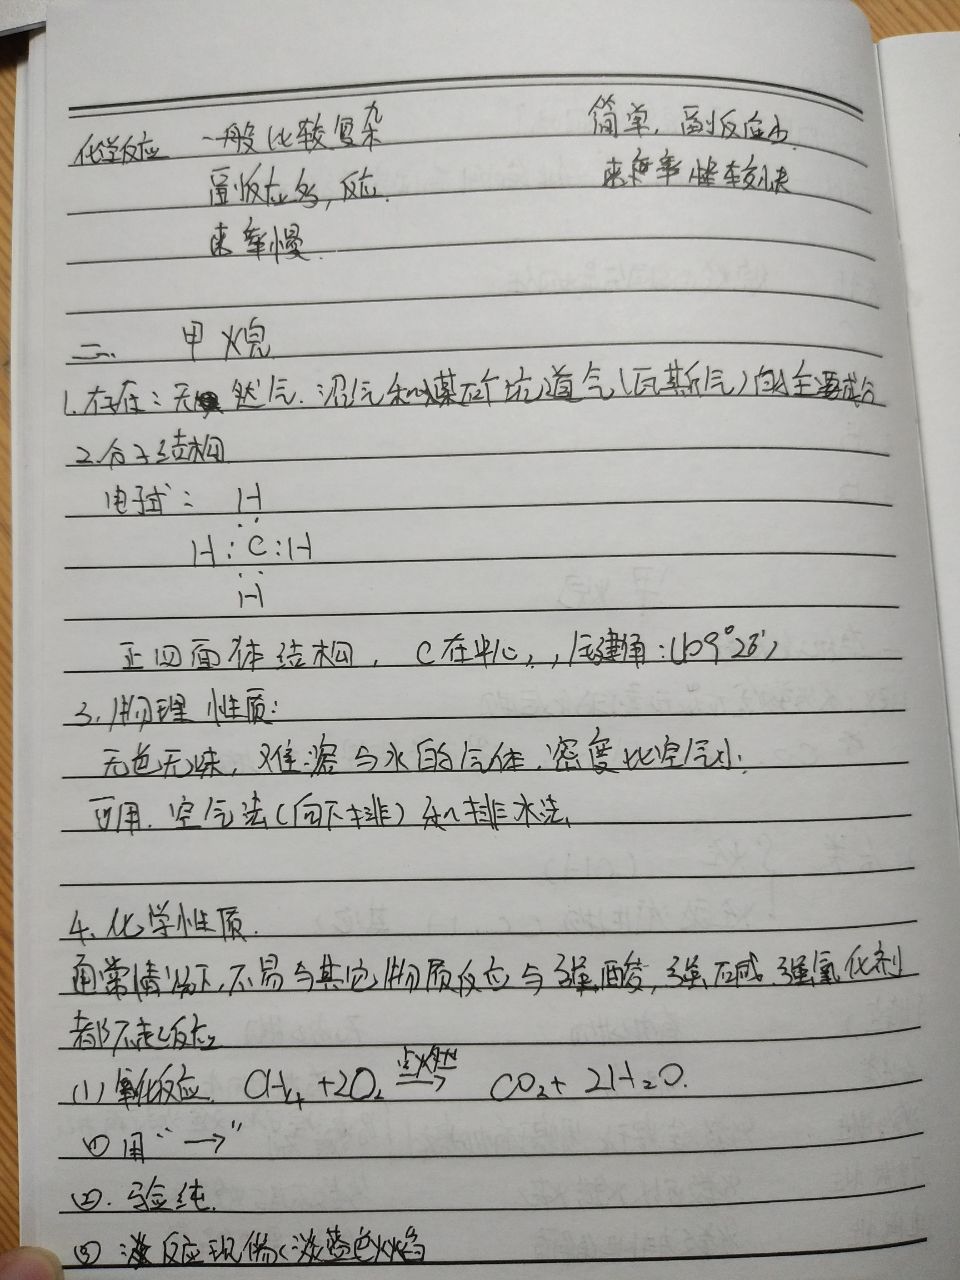 化学反应 一般比较复杂 简单,副反应少.
副反应多,反应. 速率 较快
速率慢.
二、 甲烷
1.存在:天然气.沼气和煤矿坑道气(瓦斯气)的主要成分
2.分子结构
电子式: H
H:C:H
H
正四面体结构, C在中心,,后建角:109°28′,
3.物理性质:
无色无味,难溶与水的气体.密度比空气小.
可用.空气法(向下排)和排水法、
4、化学性质.
通常情况下,不易与其它物质反应与强酸,强碱.强氧化剂
都不起反应
(1)氧化反应. CH₄+2O₂ 点燃→ CO₂+2H₂O.
① 用“→”
②.验纯.
③ 反应现象(淡蓝色火焰